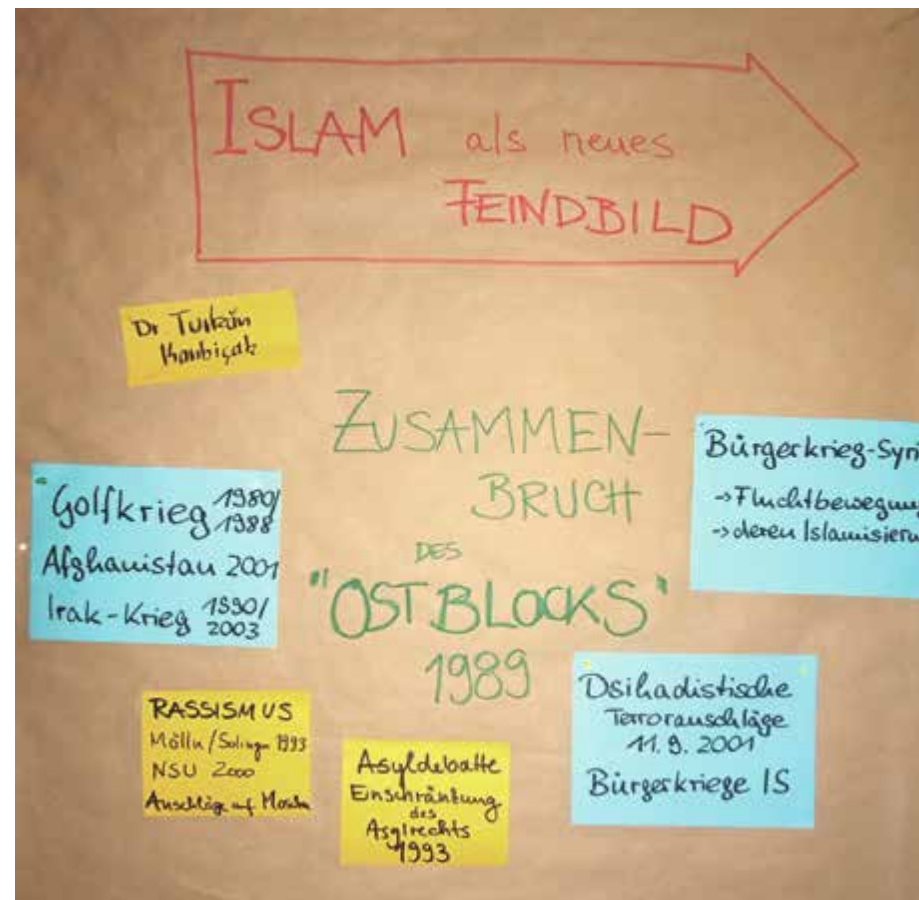 ISLAM als neues
FEINDBILD
Dr Türkân
Kanbıçak
ZUSAMMEN-
BRUCH
DES
"OSTBLOCKS"
1989
Golfkrieg 1980/
1988
Afghanistan 2001
Irak-Krieg 1990/
2003
Bürgerkrieg-Syri
→Fluchtbewegung
→deren Islamisieru
RASSISMUS
Mölln/Solingen 1993
NSU 2000
Anschläge auf
Asyldebatte
Einschränkung
des
Asylrechts
1993
Dsihadistische
Terroranschläge
11.9.2001
Bürgerkriege IS